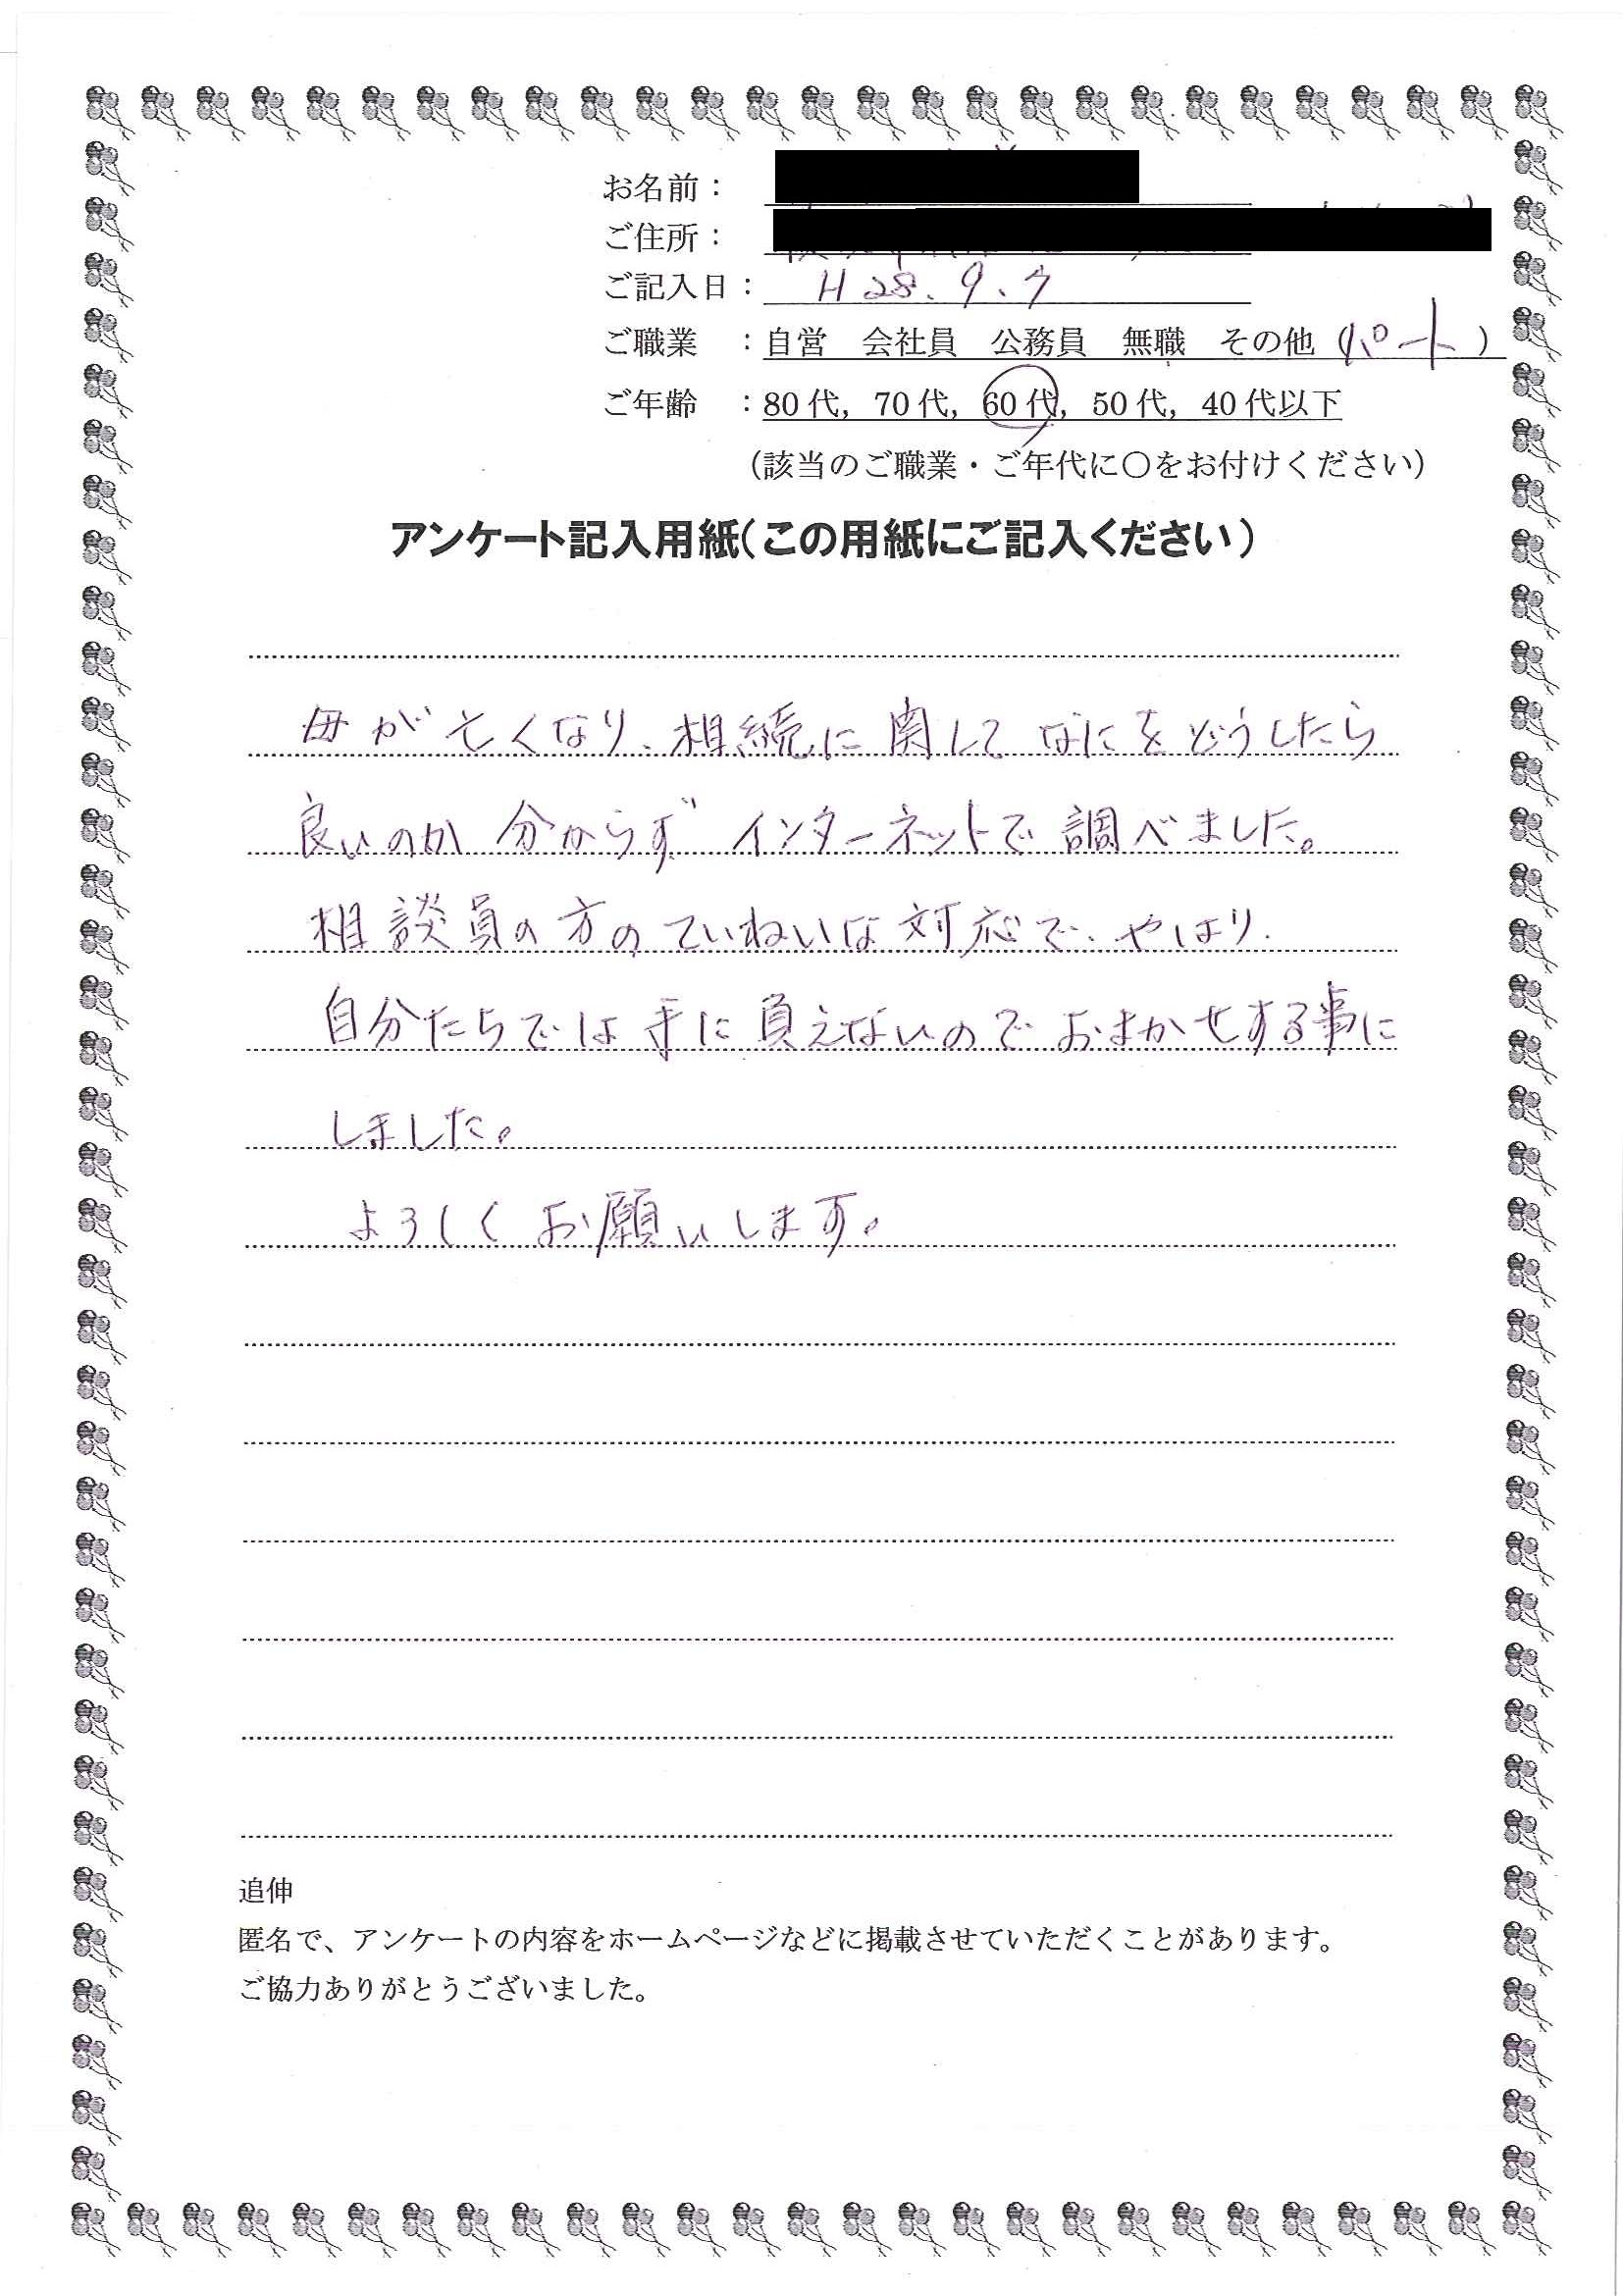 お名前：
ご住所：
ご記入日： H28.9.7
ご職業　：自営　会社員　公務員　無職　その他（パート）
ご年齢　：80代，70代，60代，50代，40代以下
（該当のご職業・ご年代に〇をお付けください）
アンケート記入用紙（この用紙にご記入ください）
母が亡くなり、相続に関してなにをどうしたら
良いのか分からずインターネットで調べました。
相談員の方のていねいな対応で、やはり
自分たちでは手に負えないのでおまかせする事に
しました。
よろしくお願いします。
追伸
匿名で、アンケートの内容をホームページなどに掲載させていただくことがあります。
ご協力ありがとうございました。